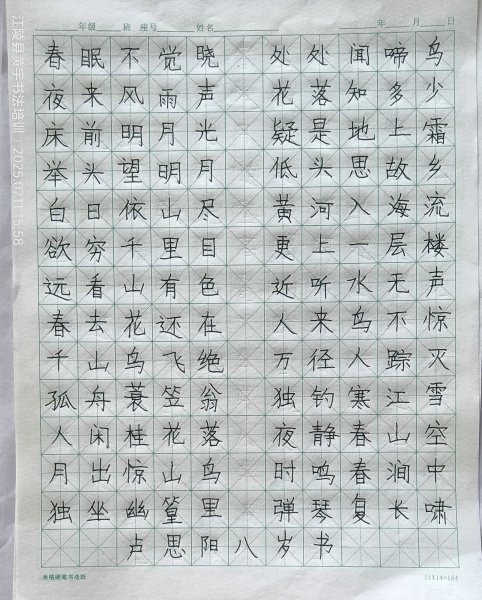 ____年级____班 座号____姓名____ 年____月____日
春眠不觉晓 处处闻啼鸟
夜来风雨声 花落知多少
床前明月光 疑是地上霜
举头望明月 低头思故乡
白日依山尽 黄河入海流
欲穷千里目 更上一层楼
远看山有色 近听水无声
春去花还在 人来鸟不惊
千山鸟飞绝 万径人踪灭
孤舟蓑笠翁 独钓寒江雪
人闲桂花落 夜静春山空
月出惊山鸟 时鸣春涧中
独坐幽篁里 弹琴复长啸
卢思阳八岁书
米格硬笔书法纸 11X14=154
江陵县 宇书法培训 2025.07.11